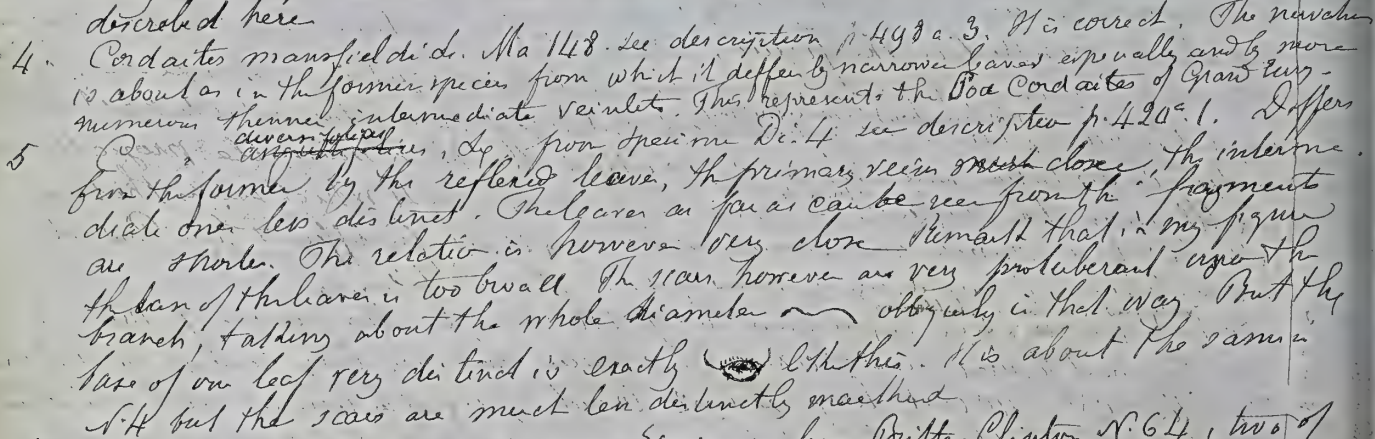 described here
4. Cordaites mansfieldi ds. Ma 148. see description p 498 a. 3. It is correct. The
is about as in the former species from which it differ by narrower leaves especially and by more
numerous thinner intermediate veinlets. This represents the Poa Cordaites of Grand Eury.
5 C " diversifolius, Lx from specime Di. 4 see description p. 420a. 1. Differs
from the former by the reflexed leaves, th primary veins much close, the interme
diate ones less distinct. The leaves as far as can be seen from the fragments
are shorter. The relation is however very close Remark that in my figure
the base of the leaves is too small The scars however are very protuberant upon the
branch, taking about the whole diameter obliquely in that way But the
base of one leaf very distinct is exactly like this. It is about the same in
N. 4 but the scars are much less distinctly marked
Britts Clinton N. 64, two of